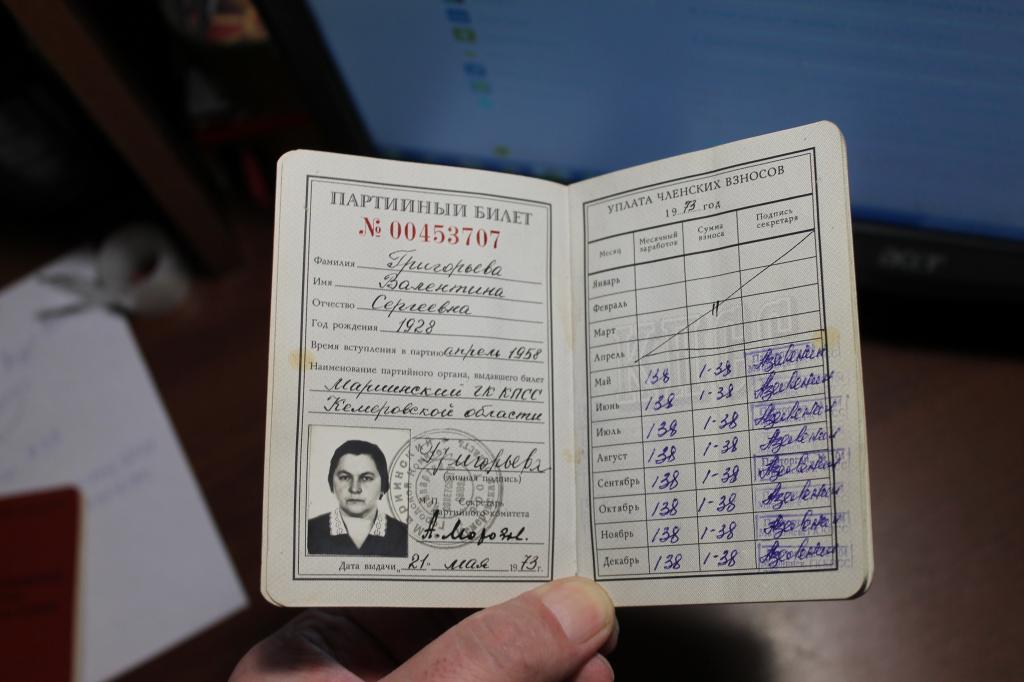 ПАРТИЙНЫЙ БИЛЕТ
№ 00453707
Фамилия Григорьева
Имя Валентина
Отчество Сергеевна
Год рождения 1928
Время вступления в партию апрель 1958
Наименование партийного органа, выдавшего билет
Мариинский ГК КПСС
Кемеровской области
Григорьева
(личная подпись)
М.П. Секретарь
партийного комитета
А. Мороз
Дата выдачи „21“ мая 1973 г.
УПЛАТА ЧЛЕНСКИХ ВЗНОСОВ
1973 год
Месяц Месячный заработок Сумма взноса Подпись секретаря
Январь
Февраль
Март
Апрель
Май 138 1-38
Июнь 138 1-38
Июль 138 1-38
Август 138 1-38
Сентябрь 138 1-38
Октябрь 138 1-38
Ноябрь 138 1-38
Декабрь 138 1-38
acer